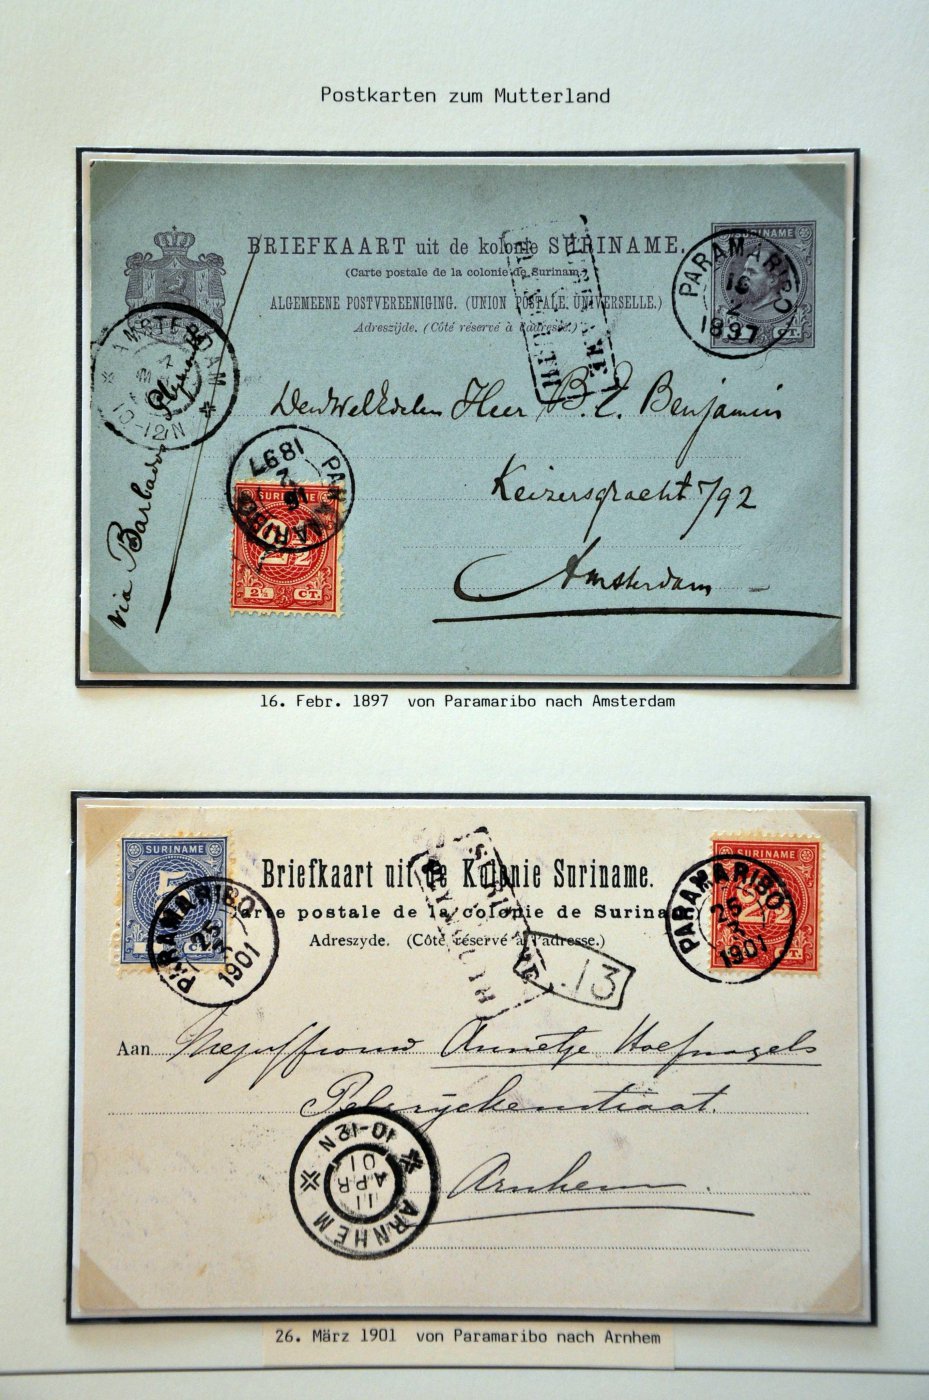 Postkarten zum Mutterland
BRIEFKAART uit de kolonie SURINAME.
(Carte postale de la colonie de Suriname.)
ALGEMEENE POSTVEREENIGING. (UNION POSTALE UNIVERSELLE.)
Adreszijde. (Côté réservé à l'adresse.)
SURINAME
CT.
PARAMARIBO
16
2
1897
AMSTERDAM
10-12/N
WelEdelen Heer B. E. Benjamin
Keizersgracht 792
Amsterdam
via Barbados
PARAMARIBO
16
2
1897
SURINAME
2½
2½ CT.
16. Febr. 1897 von Paramaribo nach Amsterdam
SURINAME
5
PARAMARIBO
25
3
1901
Briefkaart uit de Kolonie Suriname.
Carte postale de la colonie de Suriname
Adreszyde. (Côté réservé à l'adresse.)
SURINAME
2½
CT.
PARAMARIBO
25
3
1901
13
Aan Mejuffrouw Annetje Hoefnagels
Pelsryckenstraat.
Arnhem.
ARNHEM
11
APR
01
10-12N
26. März 1901 von Paramaribo nach Arnhem